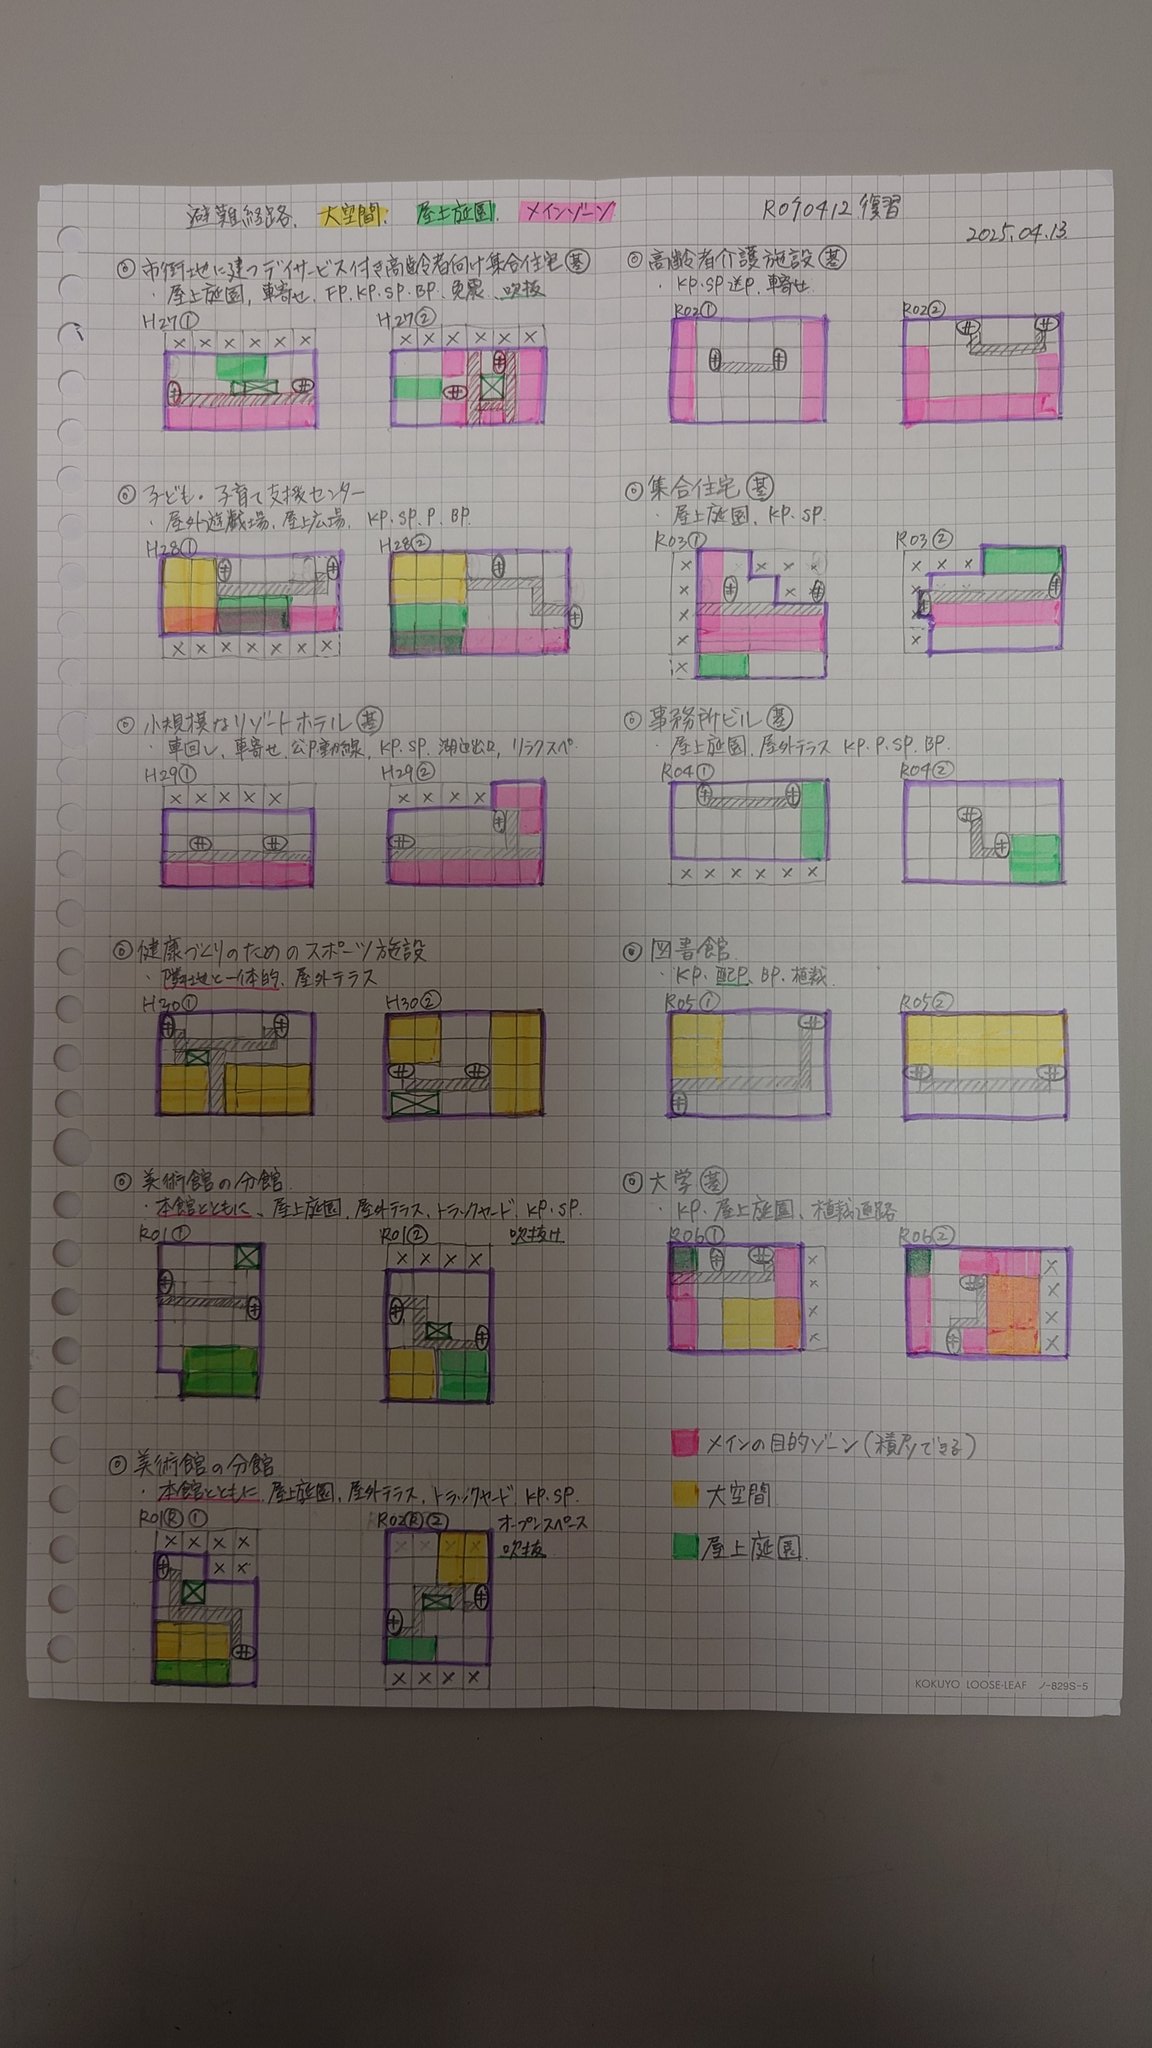 避難経路. 大空間. 屋上庭園. メインゾーン
R070412 復習
2025.04.13.
◎ 市街地に建つデイサービス付き高齢者向け集合住宅 基
・屋上庭園, 車寄せ, FP. KP. SP. BP. 免震. 吹抜
H27①
H27②
◎ 子ども・子育て支援センター
・屋外遊戯場, 屋上広場, KP. SP. P. BP.
H28①
H28②
◎ 小規模なリゾートホテル 基
・車回し, 車寄せ, 公P動線, KP. SP. 湖辺出口, リラクスペ.
H29①
H29②
◎ 健康づくりのためのスポーツ施設
・隣地と一体的, 屋外テラス
H30①
H30②
◎ 美術館の分館
・本館とともに, 屋上庭園, 屋外テラス, トラックヤード, KP. SP.
R01①
R01②
吹抜け
◎ 美術館の分館
・本館とともに, 屋上庭園, 屋外テラス, トラックヤード, KP. SP.
R01Ⓡ①
R02Ⓡ②
オープンスペース
吹抜
◎ 高齢者介護施設 基
・KP. SP 送P. 車寄せ.
R02①
R02②
◎ 集合住宅 基
・屋上庭園, KP. SP.
R03①
R03②
◎ 事務所ビル 基
・屋上庭園, 屋外テラス KP. P. SP. BP.
R04①
R04②
◎ 図書館
・KP. 配P. BP. 植栽.
R05①
R05②
◎ 大学 基
・KP. 屋上庭園, 植栽通路
R06①
R06②
メインの目的ゾーン (積層できる)
大空間
屋上庭園.
KOKUYO LOOSE-LEAF ノ-829S-5